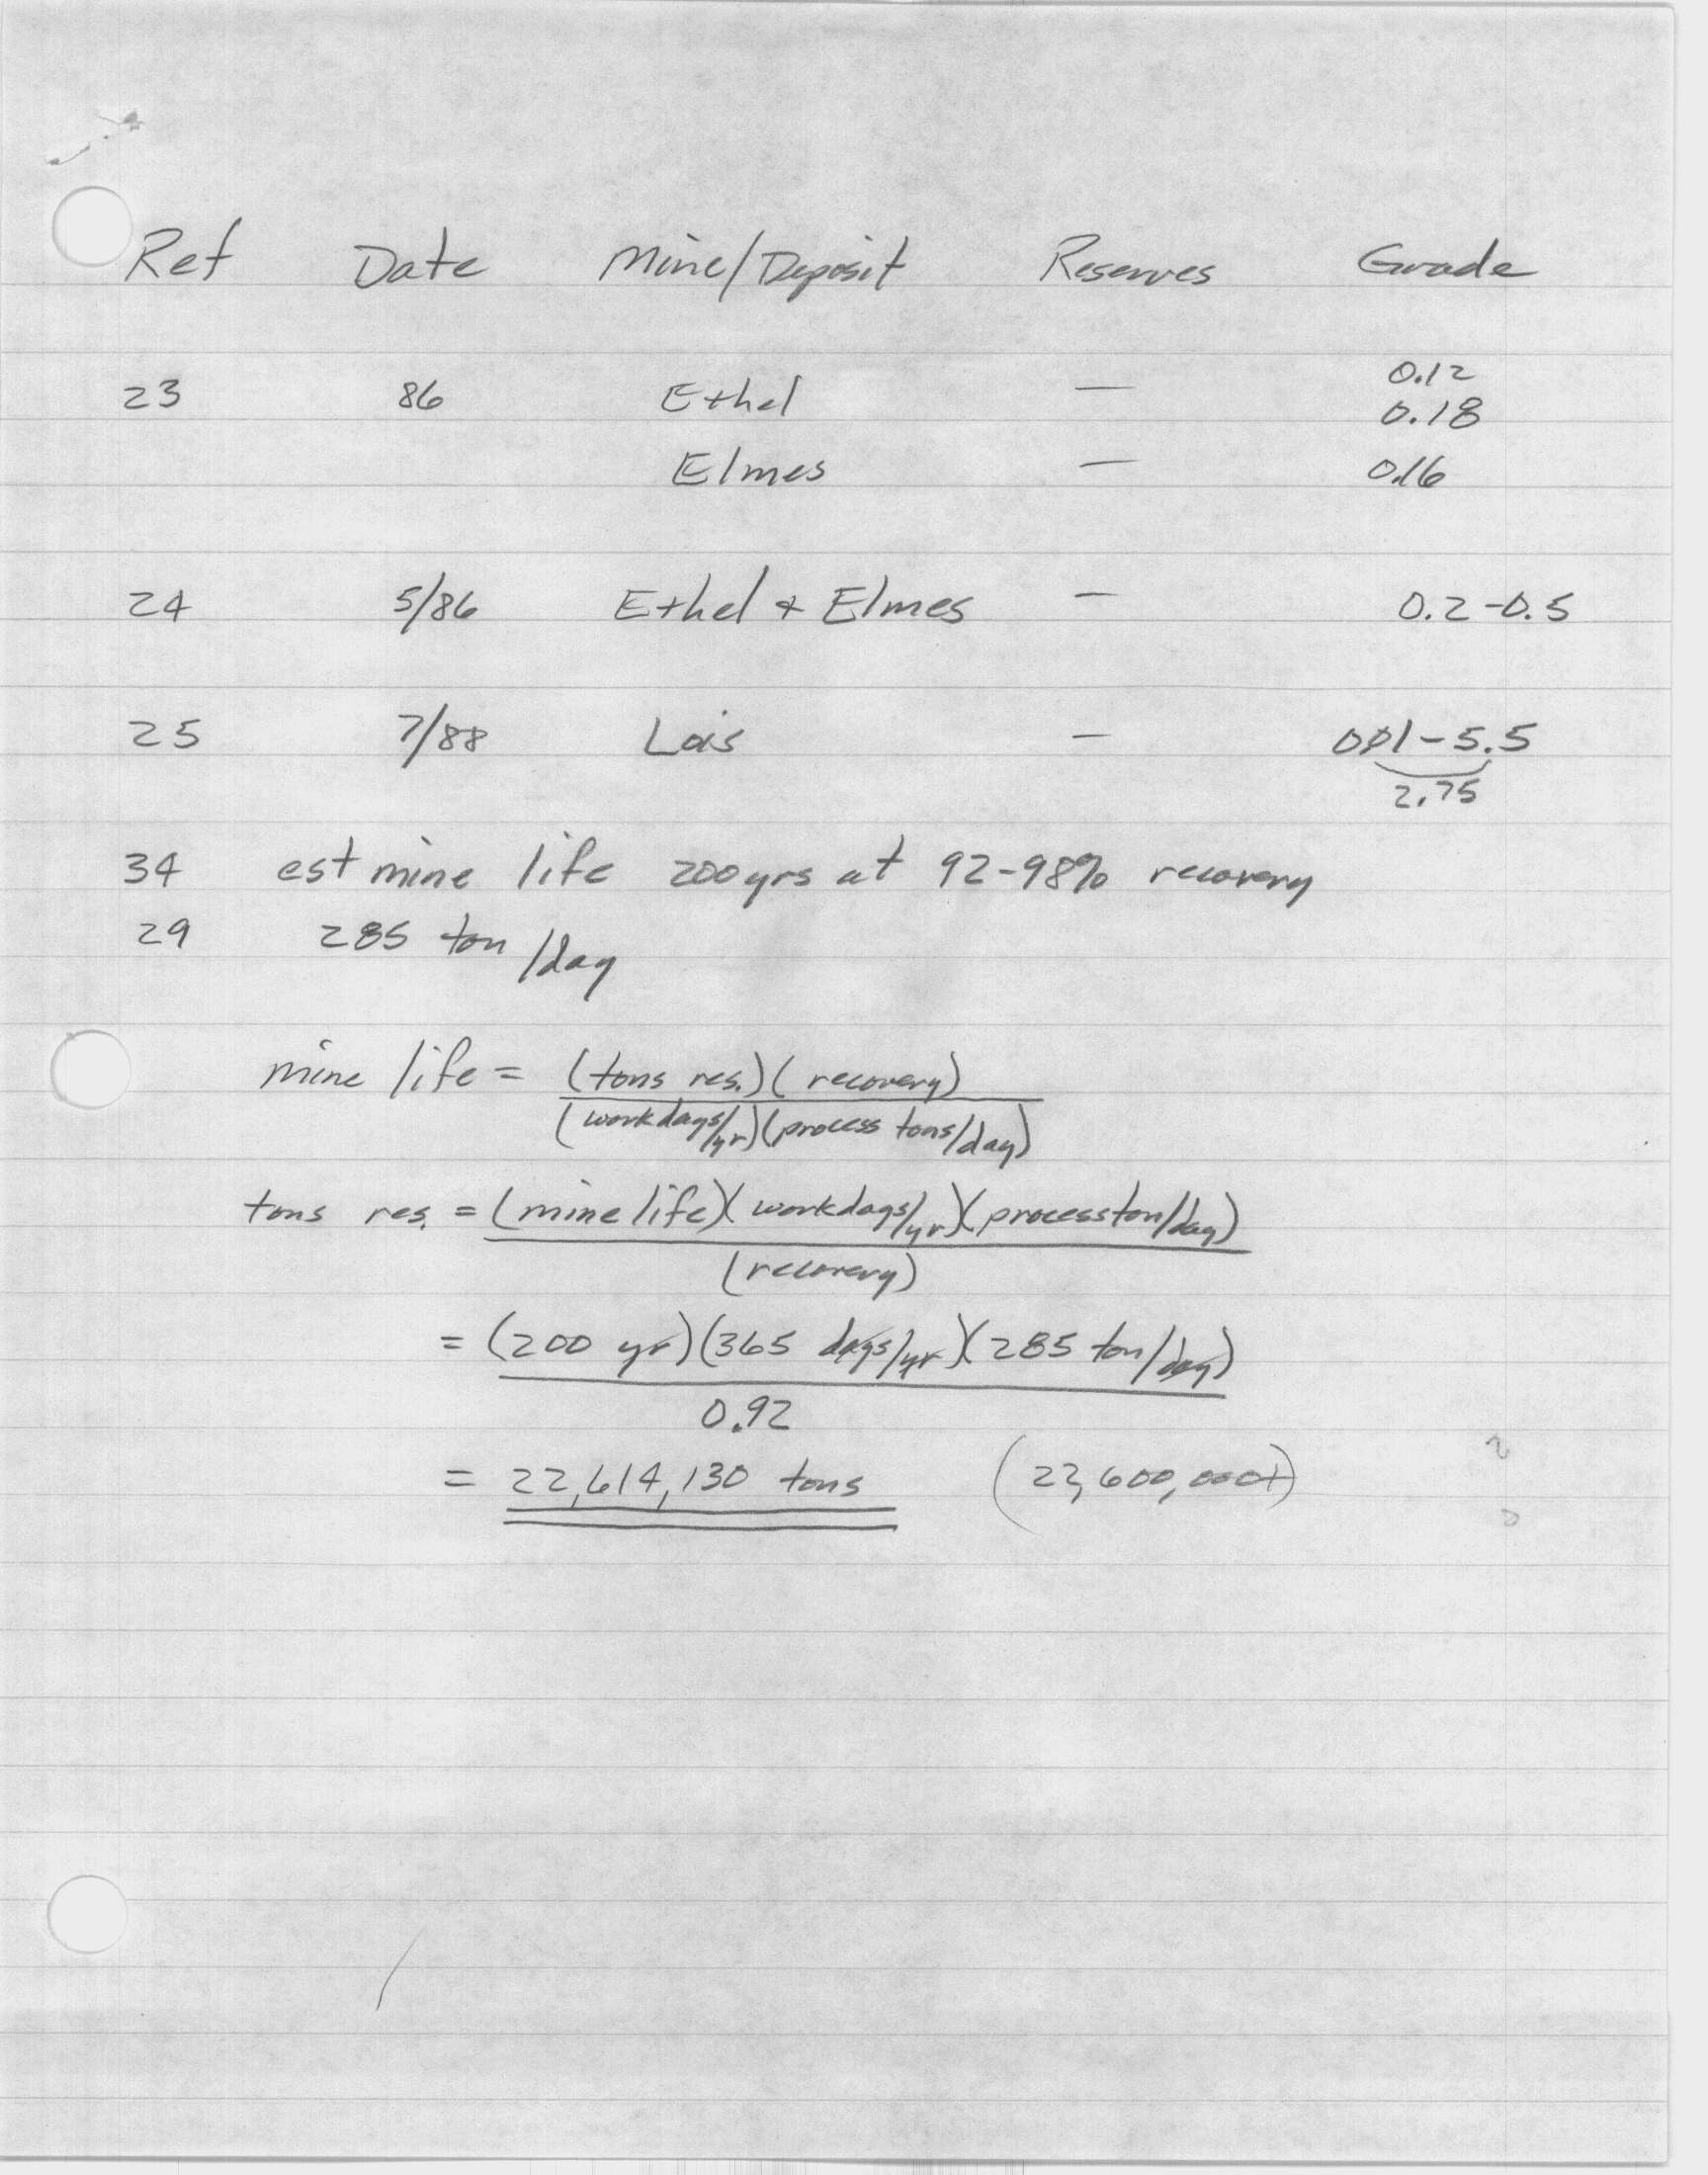 Ref Date Mine/Deposit Reserves Grade
0.12
23 86 Ethel — 0.18
Elmes — 0.16
24 5/86 Ethel + Elmes — 0.2-0.5
25 7/88 Lois — 5.5
2.75
34 est mine life 200yrs at 92-98% recovery
29 285 ton/day
mine life = (tons res.)(recovery)
(workdays/yr)(process tons/day)
tons res. = (mine life)(workdays/yr)(process ton/day)
(recovery)
= (200 yr)(365 days/yr)(285 ton/day)
0.92
= 22,614,130 tons (22,600,000t)